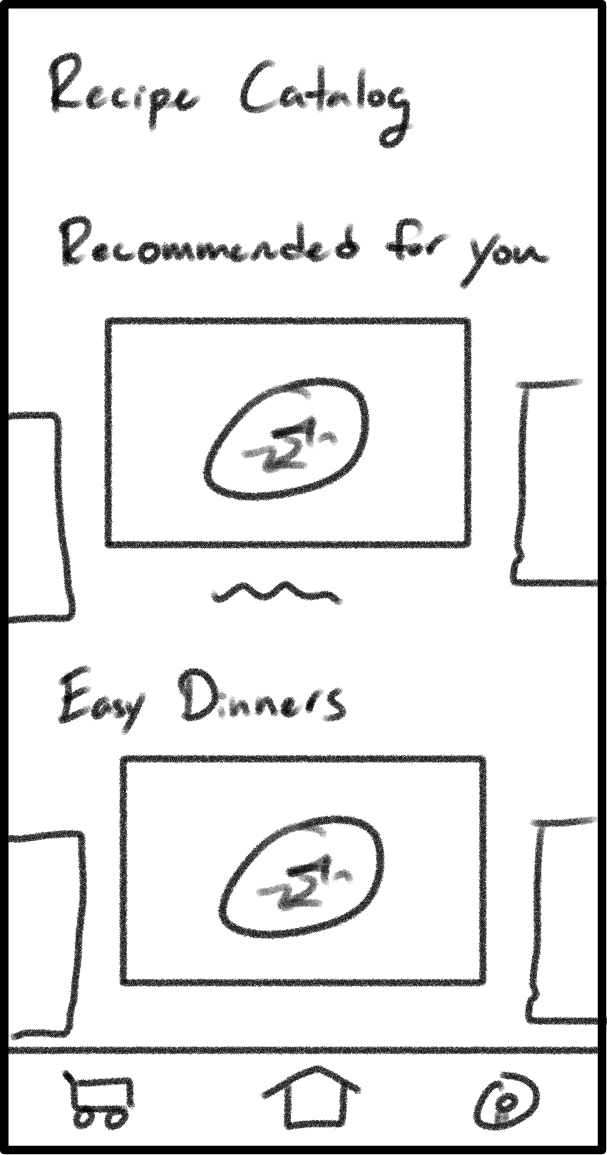 Recipe Catalog
Recommended for you
Easy Dinners